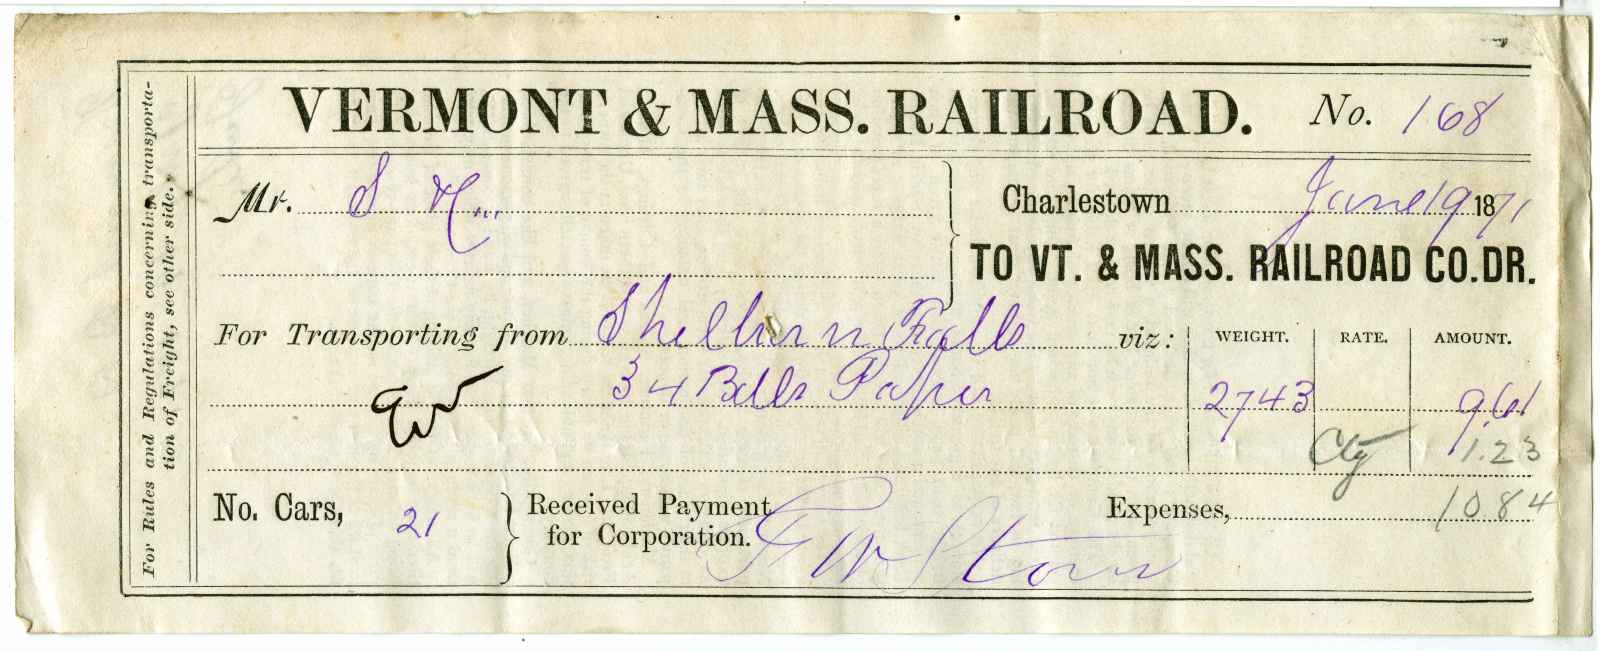 VERMONT & MASS. RAILROAD. No. 168
Mr. S H
Charlestown June 19 1871
TO VT. & MASS. RAILROAD CO. DR.
For Transporting from Shelburn Falls viz: WEIGHT. RATE. AMOUNT.
34 Bdls Paper 2743 9,61
Ctg 1.23
No. Cars, 21 Received Payment for Corporation. Expenses, 10 84
F W Stow
For Rules and Regulations concerning transporta-
tion of Freight, see other side.